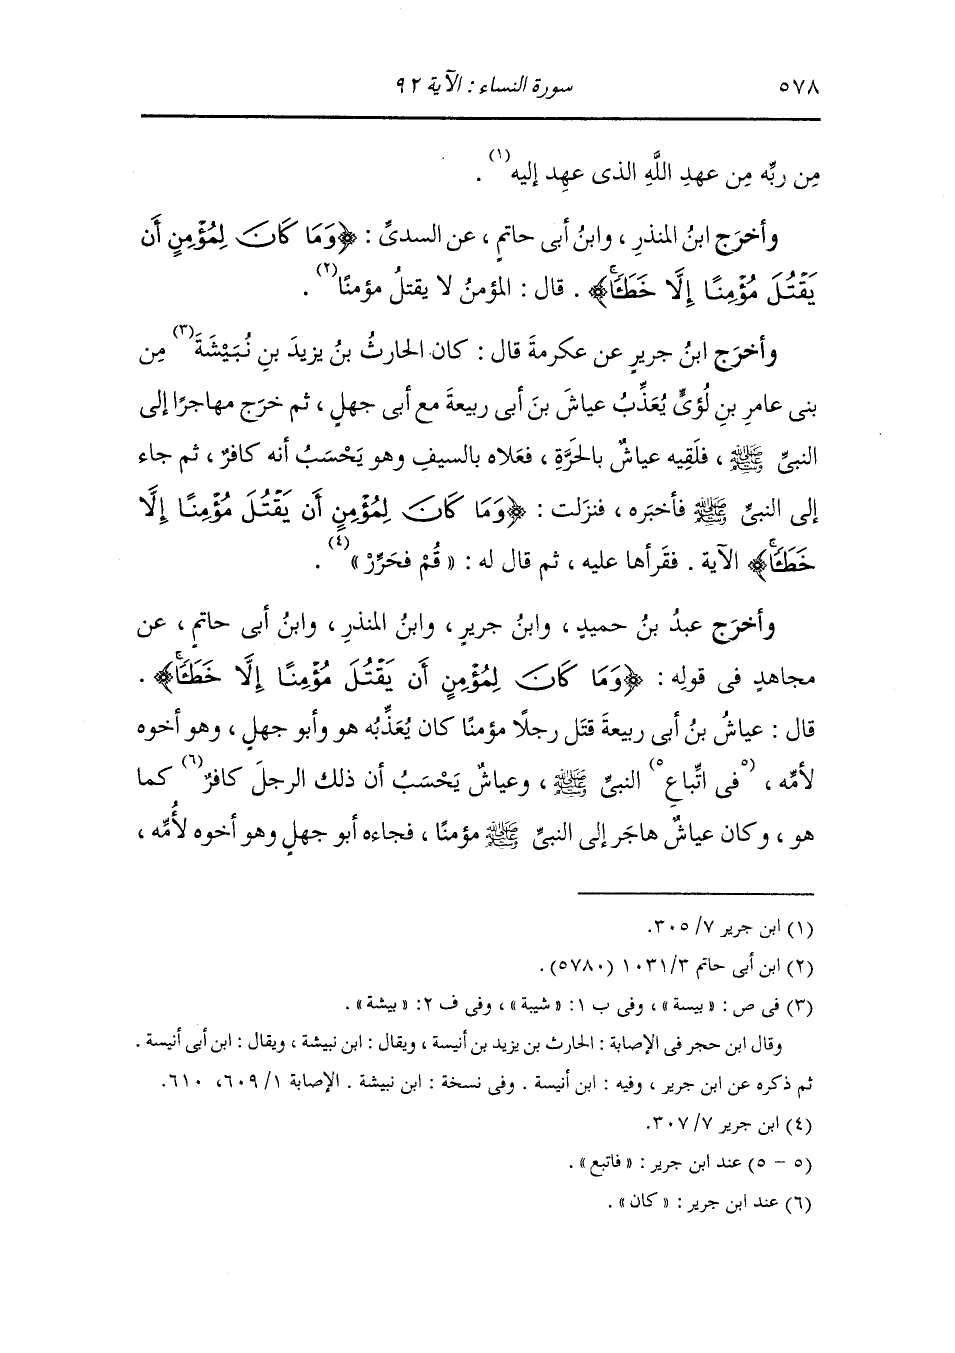 ٥٧٨ سورة النساء : الآية ٩٢
مِن ربِّه مِن عهدِ اللَّهِ الذى عهِد إليه(١) .
وأخرَج ابنُ المنذرِ ، وابنُ أبى حاتمٍ ، عن السدىِّ : ﴿وَمَا كَانَ لِمُؤْمِنٍ أَن
يَقْتُلَ مُؤْمِنًا إِلَّا خَطَـًٔا﴾ . قال : المؤمنُ لا يقتلُ مؤمنًا(٢) .
وأخرَج ابنُ جريرٍ عن عكرمةَ قال : كان الحارثُ بنُ يزيدَ بنِ نُبَيْشَةَ(٣) مِن
بنى عامرِ بنِ لُؤىٍّ يُعَذِّبُ عياشَ بنَ أبى ربيعةَ مع أبى جهلٍ ، ثم خرَج مهاجرًا إلى
النبىِّ ﷺ ، فلَقِيه عياشٌ بالحَرَّةِ ، فعَلاه بالسيفِ وهو يَحْسَبُ أنه كافرٌ ، ثم جاء
إلى النبىِّ ﷺ فأخبَره ، فنزَلت : ﴿وَمَا كَانَ لِمُؤْمِنٍ أَن يَقْتُلَ مُؤْمِنًا إِلَّا
خَطَـًٔا﴾ الآية . فقَرأها عليه ، ثم قال له : « قُمْ فحَرِّرْ »(٤) .
وأخرَج عبدُ بنُ حميدٍ ، وابنُ جريرٍ ، وابنُ المنذرِ ، وابنُ أبى حاتمٍ ، عن
مجاهدٍ فى قولِه : ﴿وَمَا كَانَ لِمُؤْمِنٍ أَن يَقْتُلَ مُؤْمِنًا إِلَّا خَطَـًٔا﴾ .
قال : عياشُ بنُ أبى ربيعةَ قتَل رجلًا مؤمنًا كان يُعَذِّبُه هو وأبو جهلٍ ، وهو أخوه
لأمِّه ، (٥فى اتِّباعِ٥) النبىِّ ﷺ ، وعياشٌ يَحْسَبُ أن ذلك الرجلَ كافرٌ(٦) كما
هو ، وكان عياشٌ هاجَر إلى النبىِّ ﷺ مؤمنًا ، فجاءه أبو جهلٍ وهو أخوه لأُمِّه ،
(١) ابن جرير ٧/ ٣٠٥.
(٢) ابن أبى حاتم ١٠٣١/٣ (٥٧٨٠) .
(٣) فى ص : « بيسة » ، وفى ب ١: « شيبة » ، وفى ف ٢: « بيشة » .
وقال ابن حجر فى الإصابة : الحارث بن يزيد بن أنيسة ، ويقال : ابن نبيشة ، ويقال : ابن أبى أنيسة .
ثم ذكره عن ابن جرير ، وفيه : ابن أنيسة . وفى نسخة : ابن نبيشة . الإصابة ١/ ٦٠٩، ٦١٠.
(٤) ابن جرير ٧/ ٣٠٧.
(٥ - ٥) عند ابن جرير : « فاتبع » .
(٦) عند ابن جرير : « كان » .